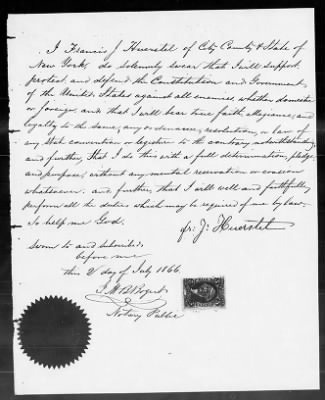 I Francis J Huerstel of City County & State of
New York, do solemnly swear that I will support,
protect, and defend the Constitution and Government,
of the United States against all enemies, whether domestic
or foreign, and that I will bear true faith, allegiance, and
loyalty to the same, any ordinance, resolution, or law of
any State convention or legislature to the contrary notwithstanding,
and further, that I do this with a full determination, pledge,
and purpose, without any mental reservation or evasion
whatsoever. and further, that I will well and faithfully
perform all the duties which may be required of me by law.
So help me God.
fr: J: Huerstel
Sworn to and subscribed
before me
this 2 day of July 1866
Notary Public